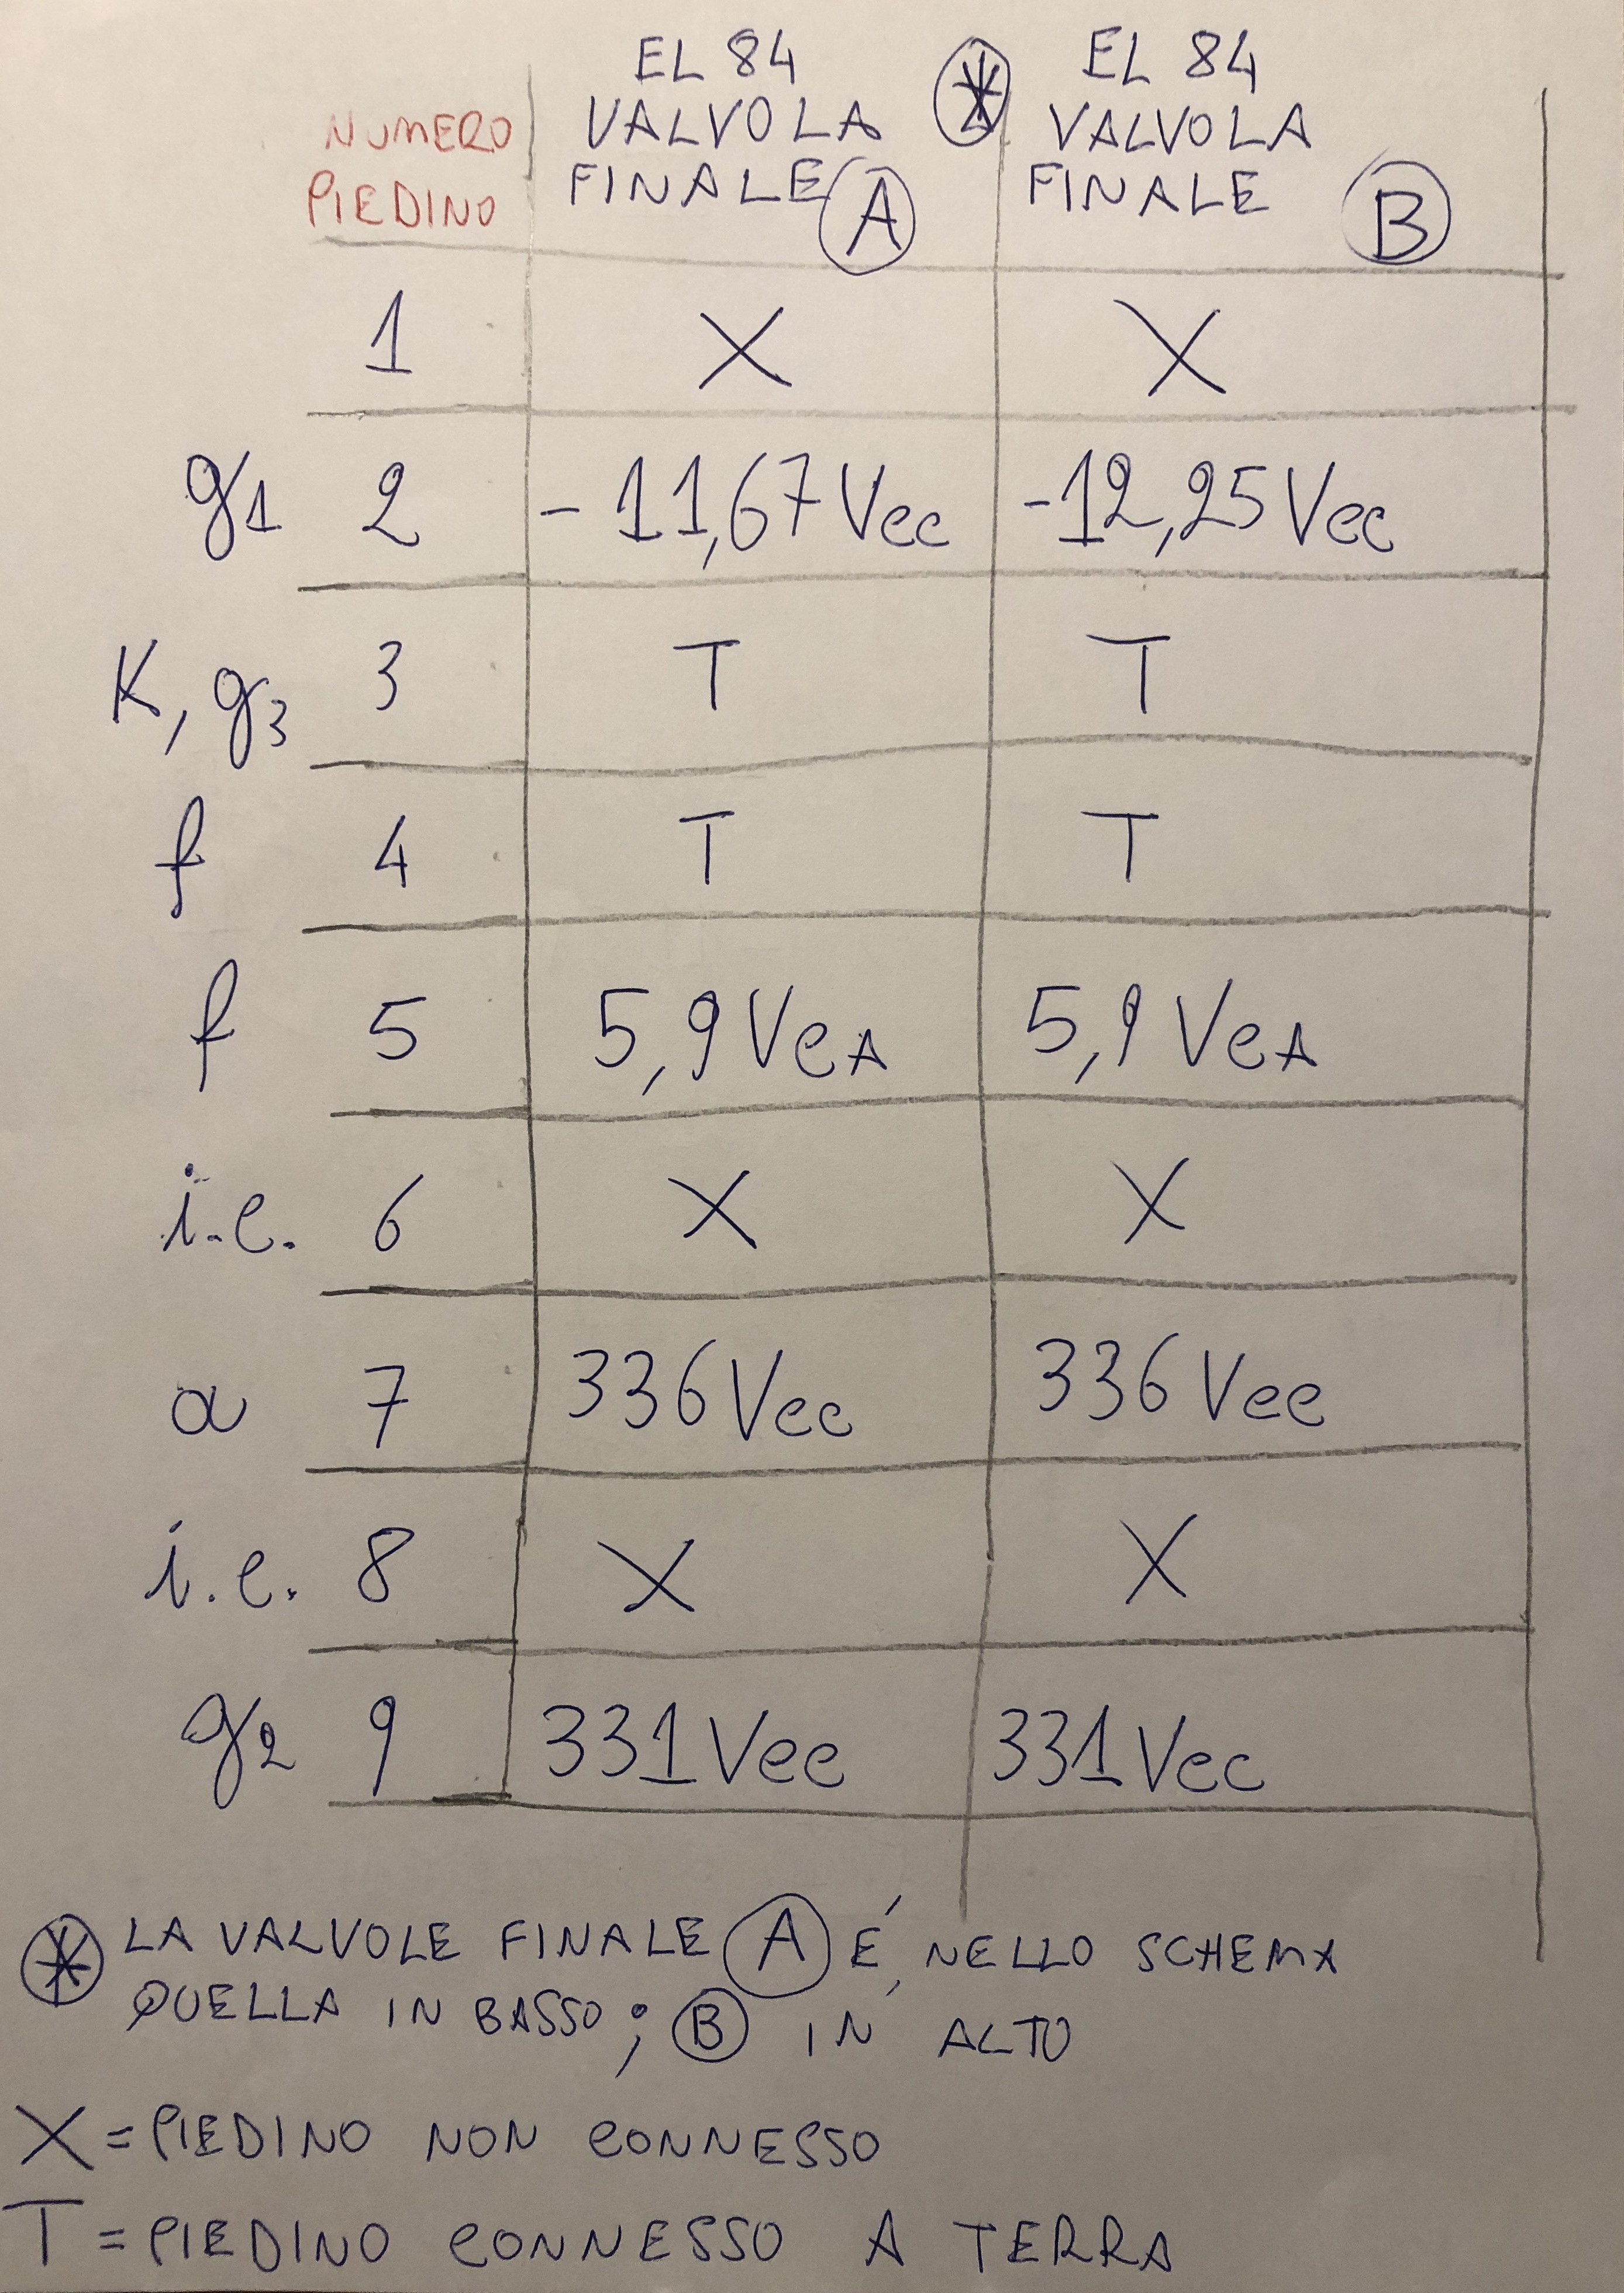 NUMERO PIEDINO
EL 84 VALVOLA FINALE A
*
EL 84 VALVOLA FINALE B
1 X X
g1 2 -11,67 Vcc -12,25 Vcc
K, g3 3 T T
f 4 T T
f 5 5,9 VcA 5,9 VcA
i.c. 6 X X
a 7 336 Vcc 336 Vcc
i.c. 8 X X
g2 9 331 Vcc 331 Vcc
* LA VALVOLE FINALE A É NELLO SCHEMA
QUELLA IN BASSO; B IN ALTO
X = PIEDINO NON CONNESSO
T = PIEDINO CONNESSO A TERRA